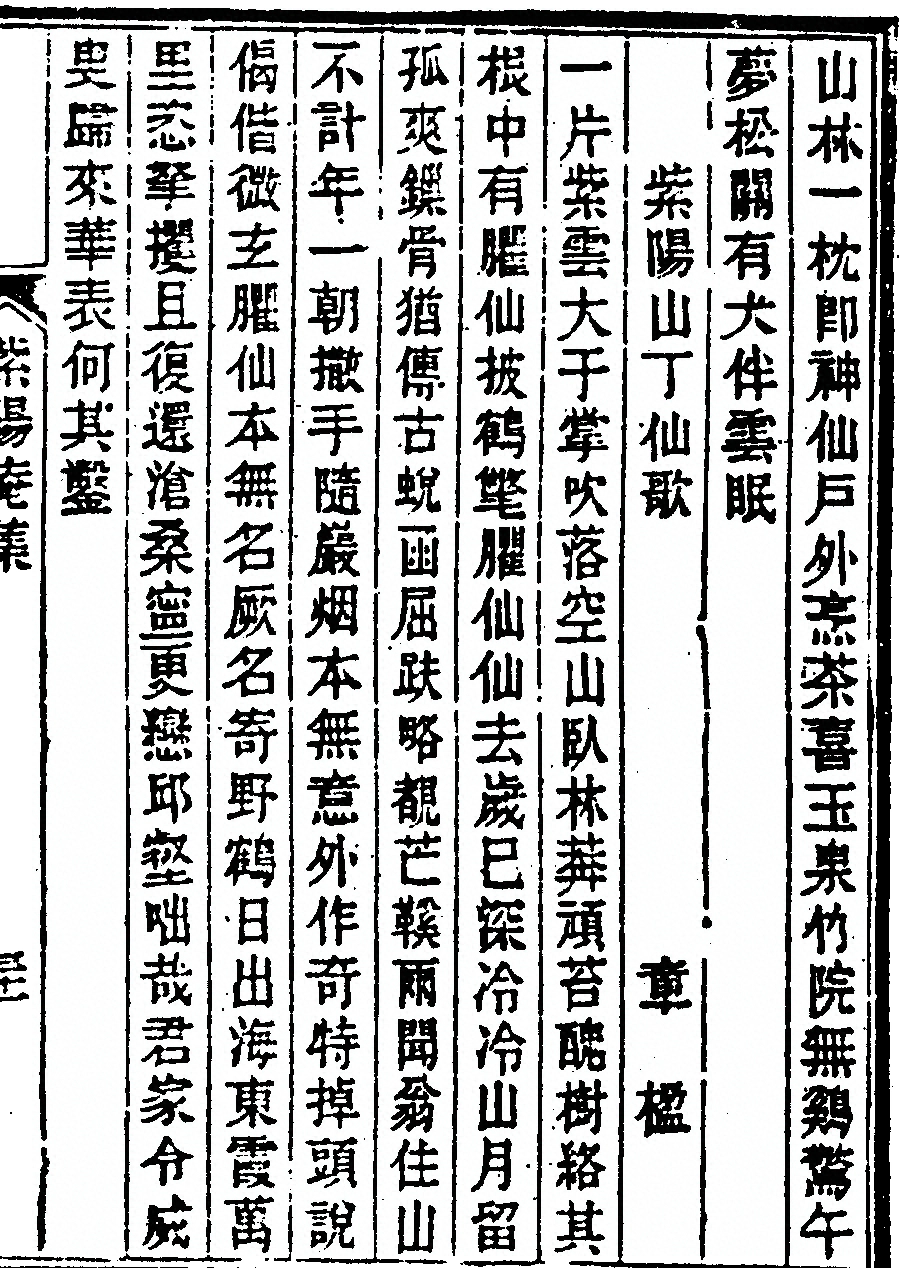 山林一枕即神仙戶外烹茶喜玉泉竹院無鷄驚午
夢松關有犬伴雲眠
紫陽山丁仙歌 章楹
一片紫雲大于掌吹落空山臥林莽頑苔醜樹絡其
根中有臞仙披鶴氅臞仙仙去歲已深冷冷山月留
孤爽鏁骨猶傳古蛻函屈趺略覩芒鞵兩聞翁住山
不計年一朝撒手隨巖烟本無意外作奇特掉頭說
偈偕微玄臞仙本無名厥名寄野鶴日出海東霞萬
里忞拏攫且復還滄桑寧更戀邱壑咄哉君家令威
叟歸來華表何其鑿
紫陽庵集